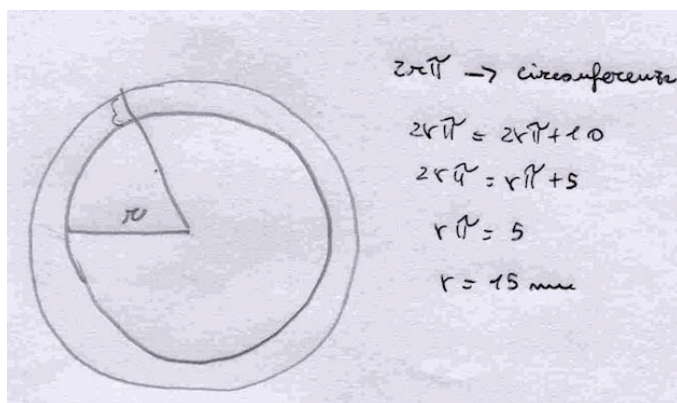 r
2rπ → circonferenza
2rπ = 2rπ+10
2rπ = rπ+5
rπ = 5
r = 15 mm